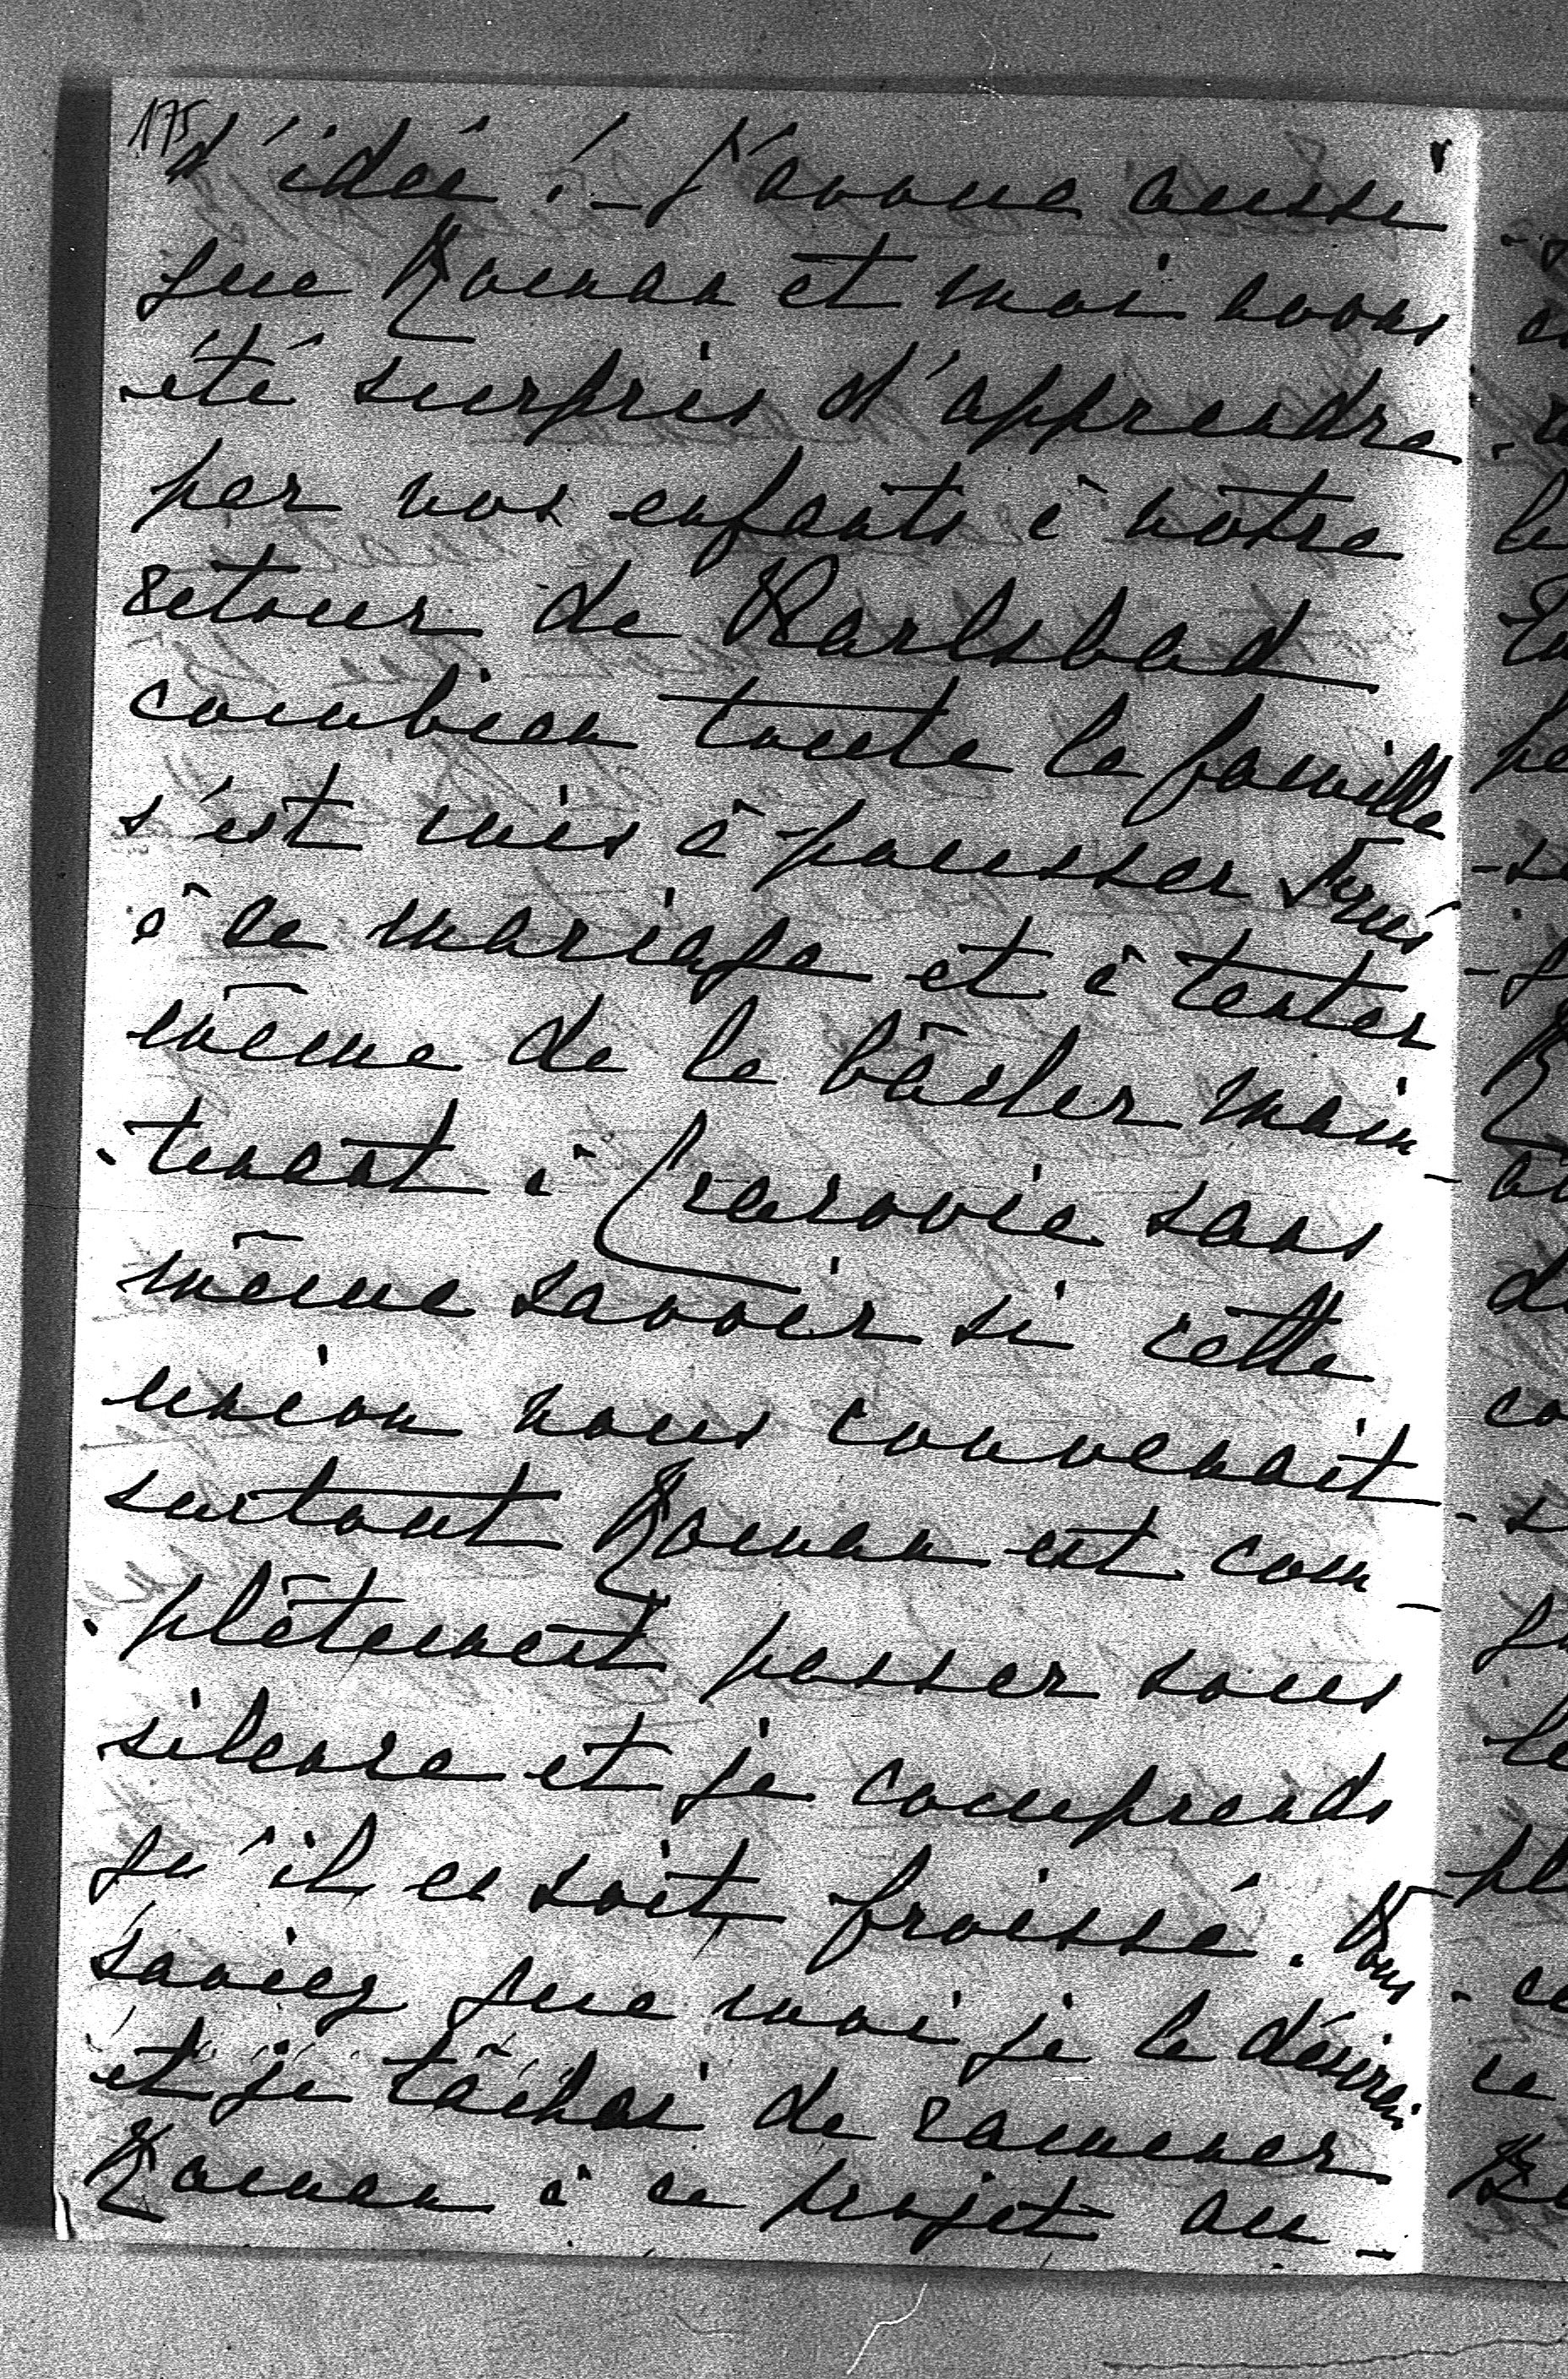 175
d'idée! – J'avoue aussi
que Roman et moi avons
été surpris d'apprendre
par nos enfants à notre
retour de Karlsbad
combien toute la famille
s'est mis à pousser
à ce mariage et à tenter
même de le bâcler main-
-tenant à Cracovie sans
même savoir si cette
union nous convenait
surtout Roman est com-
-plêtement passer sous
silence et je comprends
qu'il en soit froissé. Vous
saviez que moi je le désirai
et je tâchai de ramener
Roman à ce projet au-